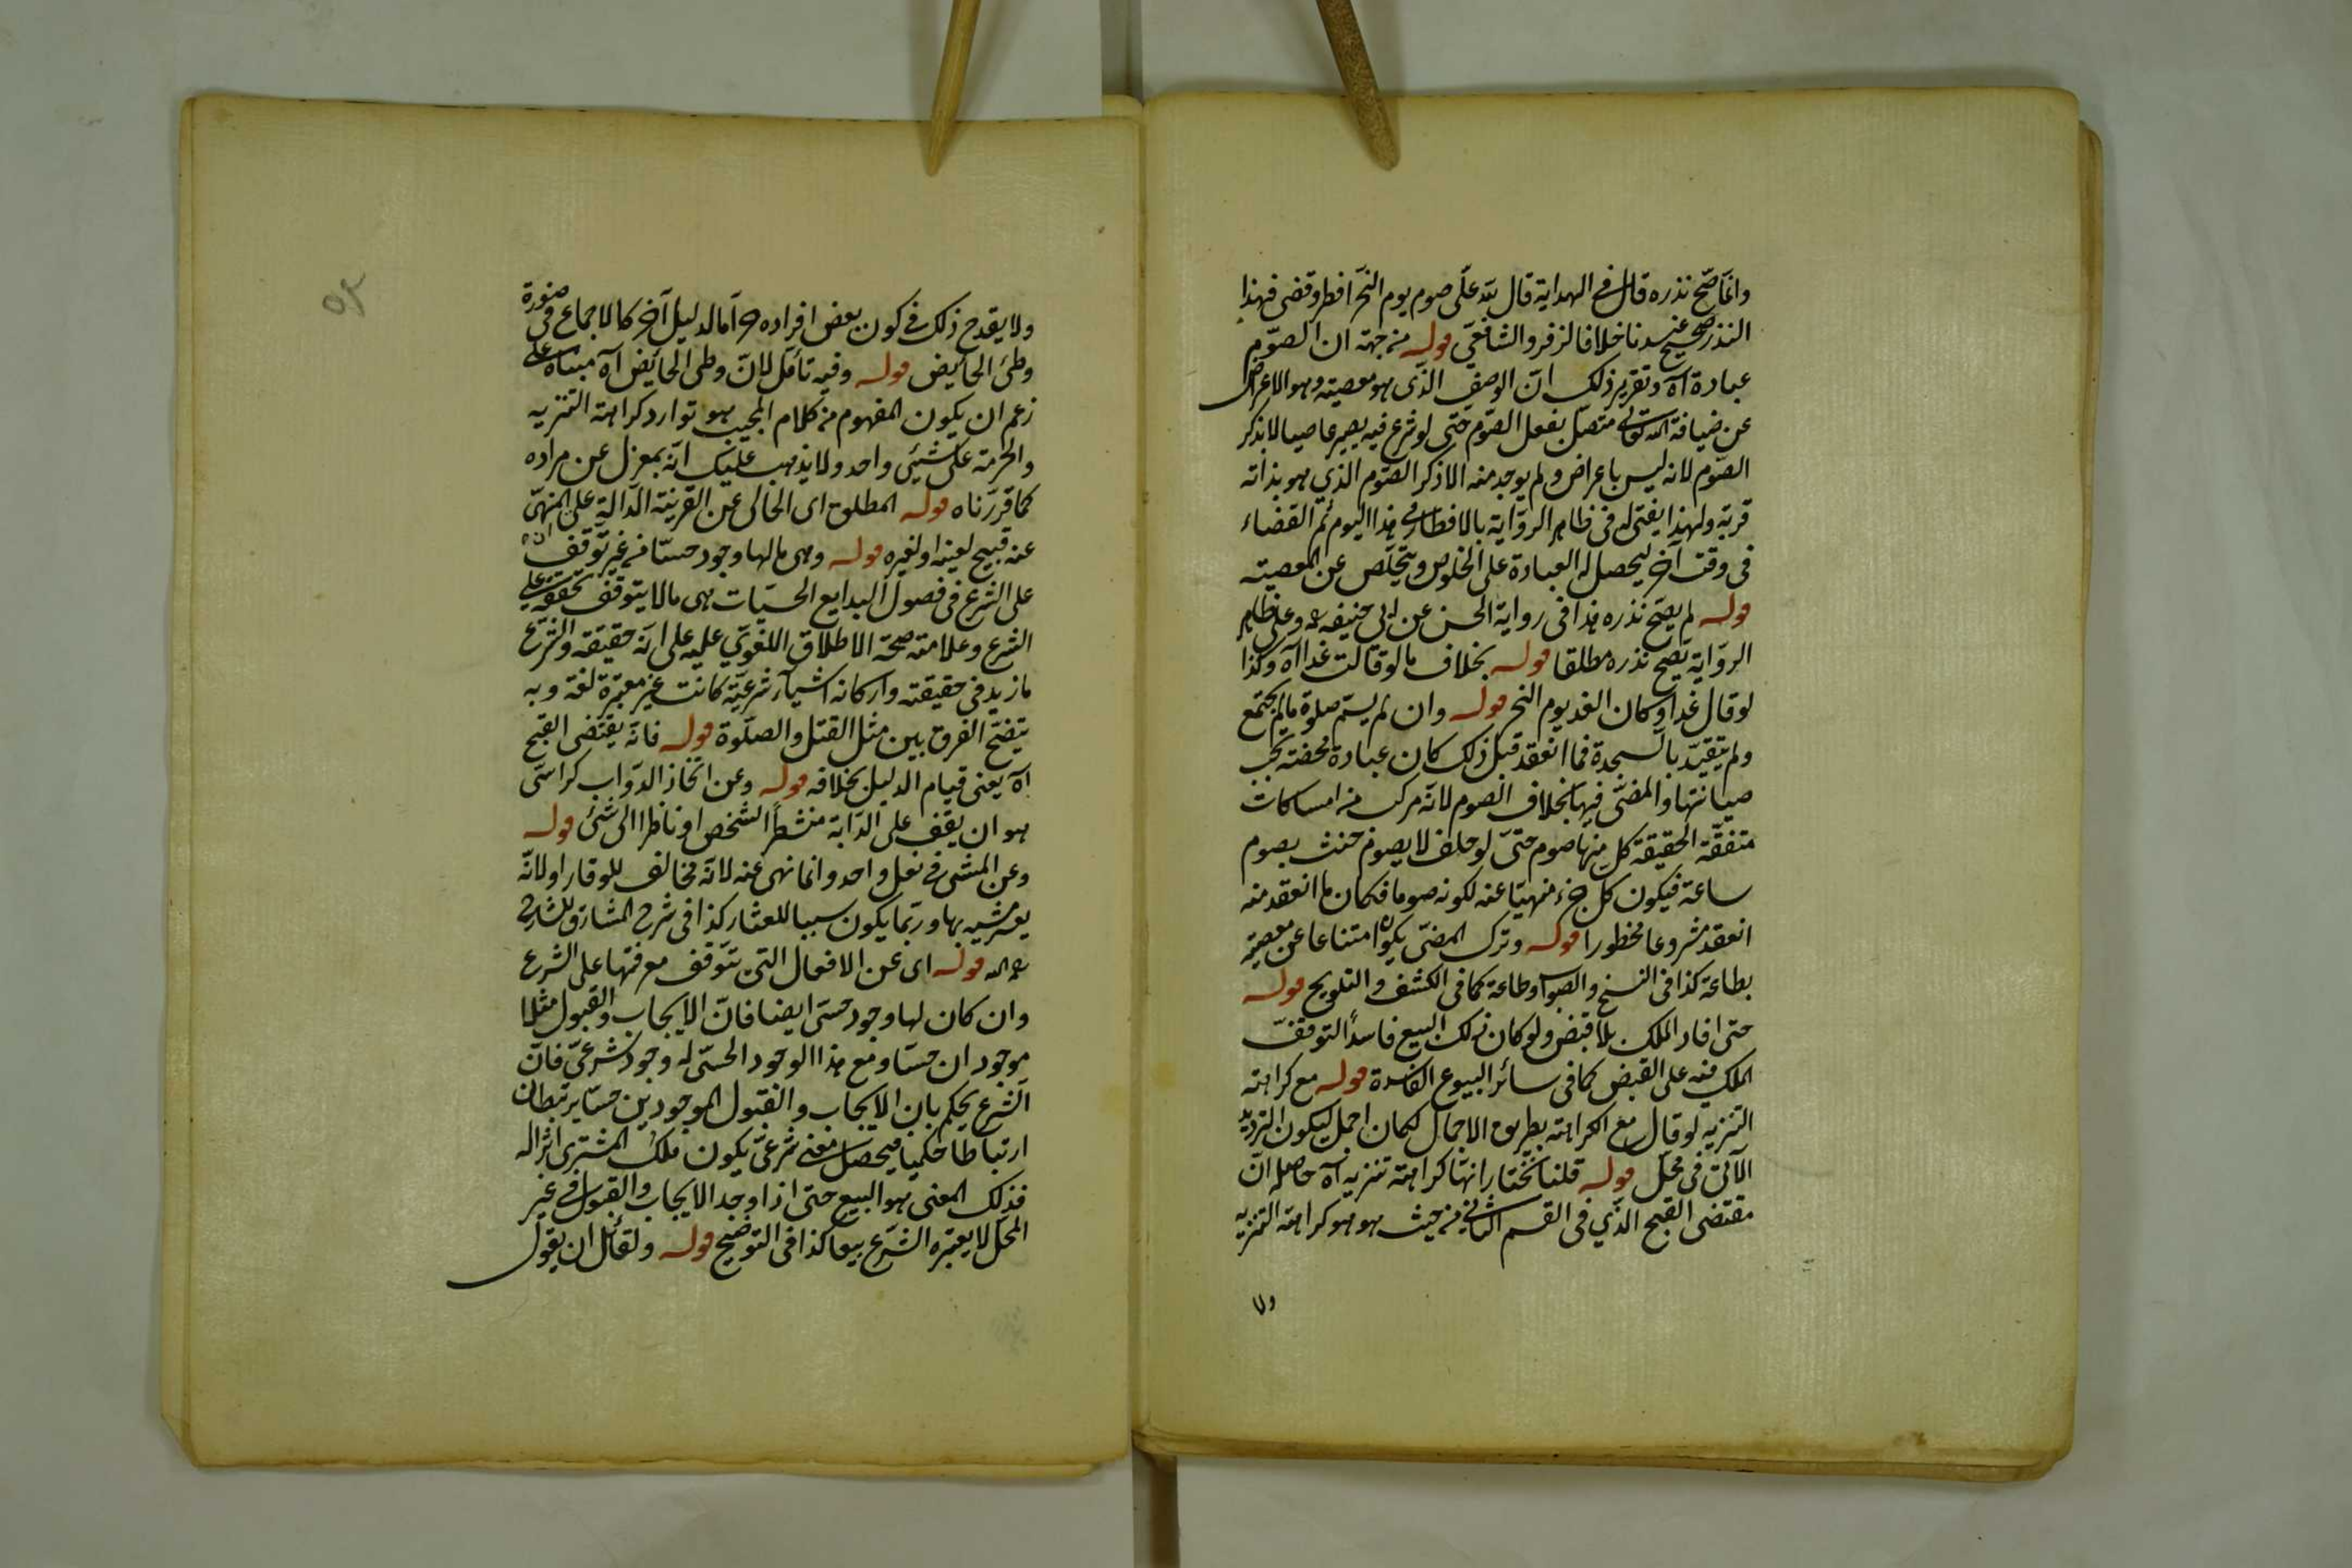 وانما صح نذره قال في الهداية قال لله علي صوم يوم النحر افطر وقضى فهذا
النذر صحيح عندنا خلافا لزفر والشافعي قوله من جهة ان الصوم
عبادة اه وتقرير ذلك ان الوصف الذي هو معصية وهو الاعراض
عن ضيافة الله تعالى متصل بفعل الصوم حتى لو شرع فيه يصير عاصيا لا بذكر
الصوم لانه ليس باعراض ولم يوجد منه الا ذكر الصوم الذي هو بذاته
قربة ولهذا يفتى له في ظاهر الرواية بالافطار في هذا اليوم ثم القضاء
في وقت آخر ليحصل له العبادة على الخلوص ويتخلص عن المعصية
قوله لم يصح نذره هذا في رواية الحسن عن ابي حنيفة وعلى ظاهر
الرواية يصح نذره مطلقا قوله بخلاف ما لو قالت غدا اه وكذا
لو قال غدا وكان الغد يوم النحر قوله وان لم يسم صلوة ما لم يجتمع
ولم يتقيد بالسجدة فما انعقد قبل ذلك كان عبادة محضة يجب
صيانتها والمضي فيها بخلاف الصوم لانه مركب من امساكات
متفقة الحقيقة كل منها صوم حتى لو حلف لا يصوم حنث بصوم
ساعة فيكون كل جزء منهيا عنه لكونه صوما فكان ما انعقد منه
انعقد مشروعا محظورا قوله وترك المضي يكون امتناعا عن معصية
بطاعة كذا في النسخ والصواب وطاعة كما في الكشف والتلويح قوله
حتى افاد الملك بلا قبض ولو كان ذلك البيع فاسدا لتوقف
الملك فيه على القبض كما في سائر البيوع الفاسدة قوله مع كراهة
التنزيه لو قال مع الكراهة بطريق الاجمال لكان اجمل ليكون الترديد
الآتي في محل قوله قلنا نختار انها كراهة تنزيه اه حاصله ان
مقتضى القبح الذي في القسم الثاني من حيث هو هو كراهة التنزيه
ولا
ولا يقدح ذلك في كون بعض افراده حراما لدليل آخر كالاجماع في صورة
وطئ الحائض قوله وفيه تأمل لان وطئ الحائض اه مبناه على
زعم ان يكون المفهوم من كلام المجيب هو توارد كراهة التنزيه
والحرمة على شيئ واحد ولا يذهب عليك انه بمعزل عن مراده
كما قررناه قوله المطلق اى الخالى عن القرينة الدالة على ان المنهى
عنه قبيح لعينه او لغيره قوله وهى ما لها وجود حسا من غير توقف
على الشرع فى فصول البدايع الحسيات هى ما لا يتوقف تحققه على
الشرع وعلامته صحة الاطلاق اللغوي عليه على انه حقيقة والشرع
ما زيد في حقيقته واركانه اشياء شرعية كانت غير معتبرة لغة وبه
يتضح الفرق بين مثل القتل والصلوة قوله فانه يقتضى القبح
اه يعنى قيام الدليل بخلافه قوله وعن اتخاذ الدواب كراسى
هو ان يقف على الدابة منتظرا لشخص او ناظرا الى شئ قوله
وعن المشى فى نعل واحد وانما نهى عنه لانه مخالف للوقار او لانه
يعسر مشيه بها وربما يكون سببا للعثار كذا في شرح المشارق للشارح
رحمه الله قوله اى عن الافعال التى تتوقف معرفتها على الشرع
وان كان لها وجود حسى ايضا فان الايجاب والقبول مثلا
موجودان حسا ومع هذا الوجود الحسى له وجود شرعى فان
الشرع يحكم بان الايجاب والقبول الموجودين حسا يرتبطان
ارتباطا حكميا فيحصل معنى شرعى يكون ملك المشترى اثرا له
فذلك المعنى هو البيع حتى اذا وجد الايجاب والقبول فى غير
المحل لا يعتبره الشرع بيعا كذا في التوضيح قوله ولقائل ان يقول